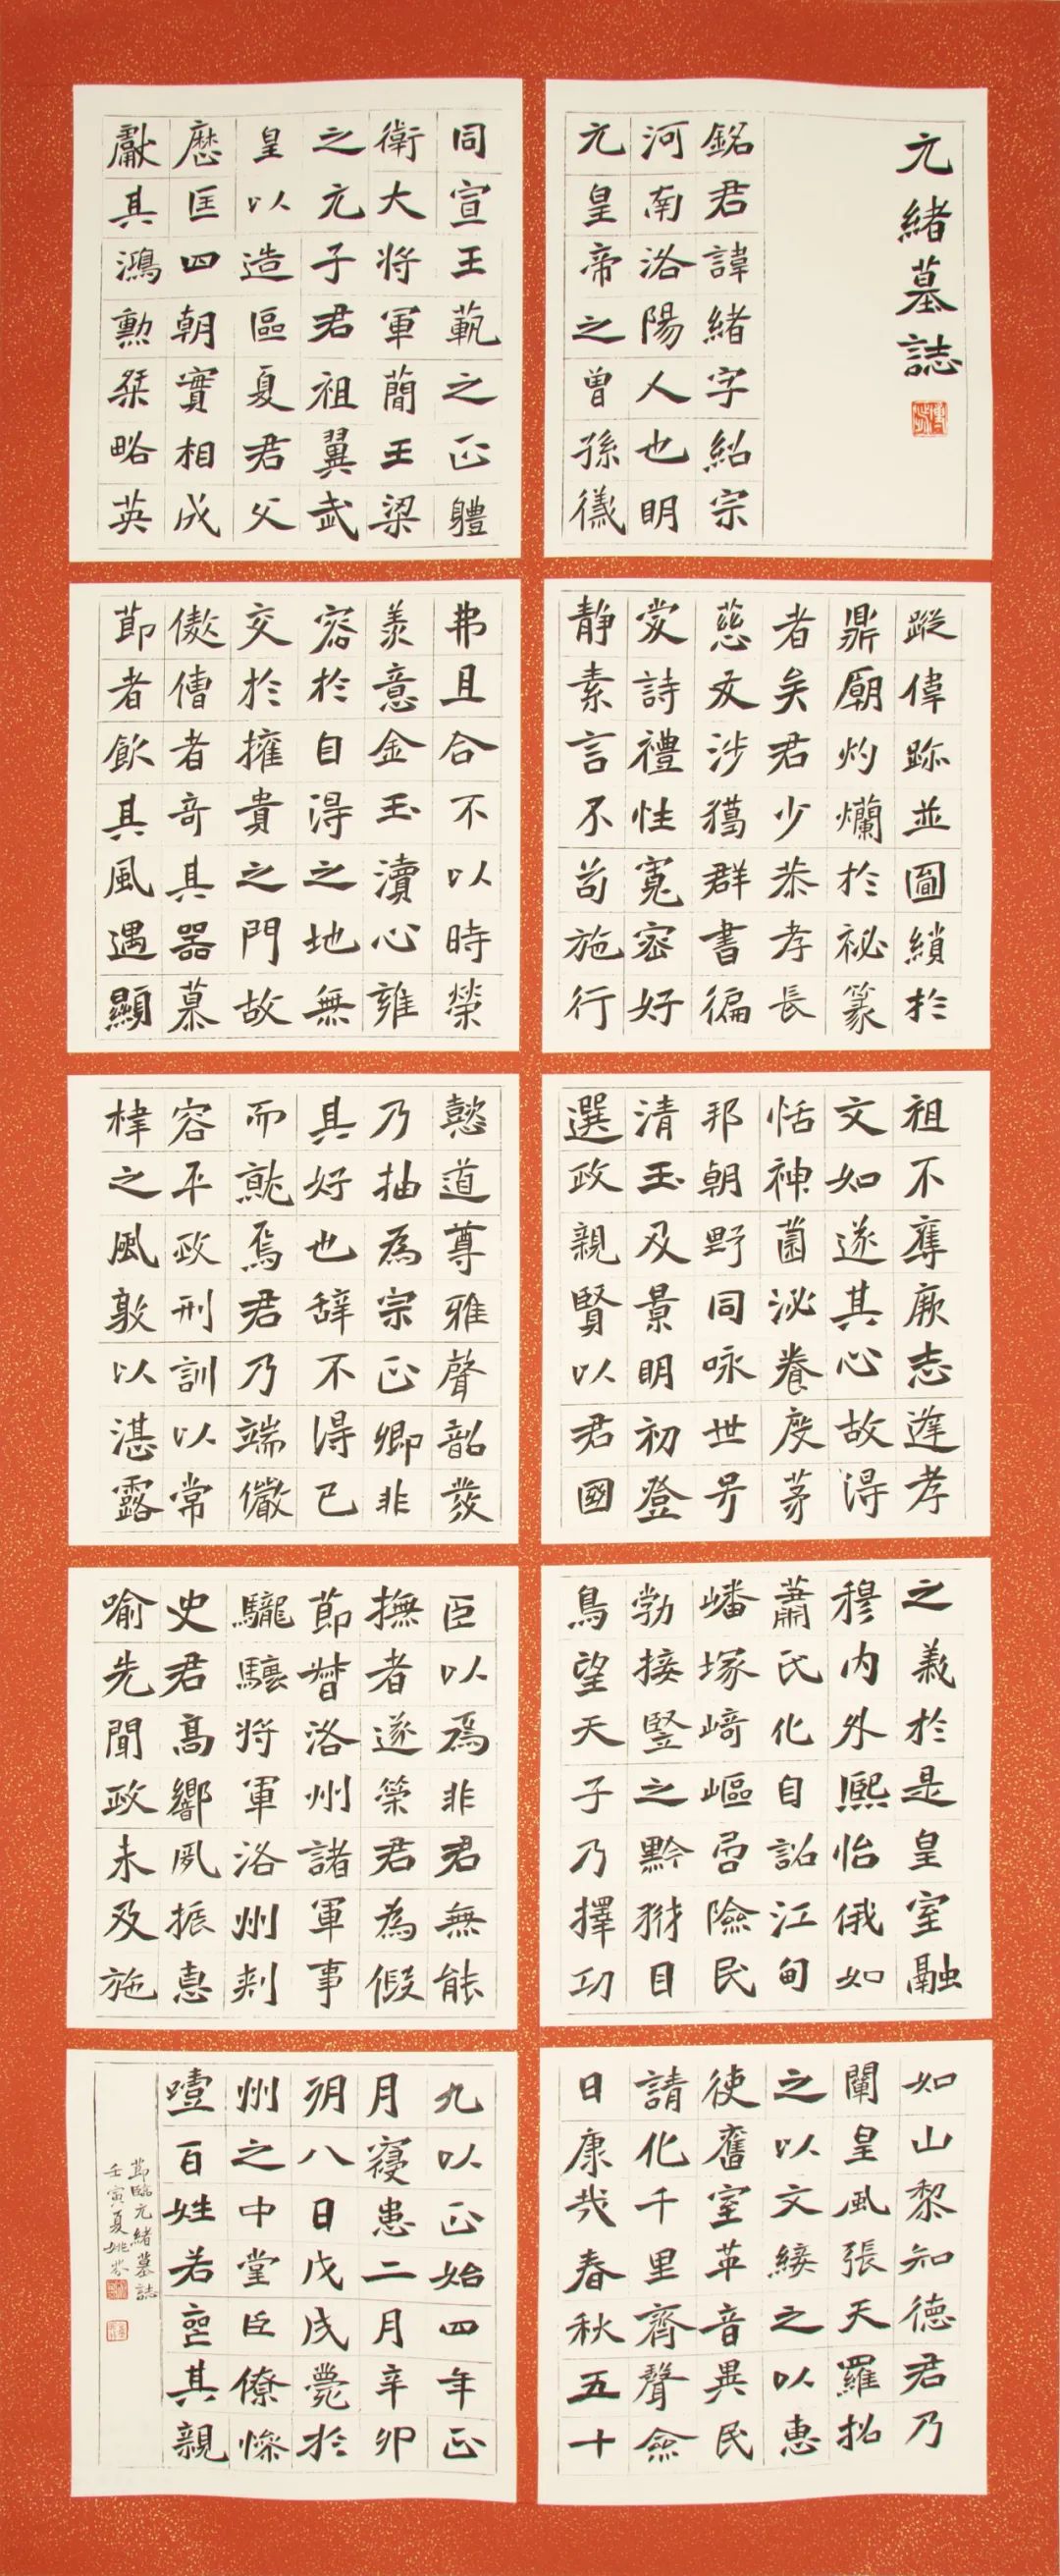 元緒墓誌
銘君諱緒字紹宗
河南洛陽人也明
元皇帝之曾孫儀
同宣王範之正體
衛大將軍簡王梁
之元子君祖翼武
皇以造區夏君父
歷匡四朝實相成
獻其鴻勳桀略英
蹤偉跡並圖繢於
鼎廟灼爛於祕篆
者矣君少恭孝長
慈友涉獦群書徧
愛詩禮性寬密好
靜素言不苟施行
弗且合不以時榮
羨意金玉瀆心雍
容於自得之地無
交於擁貴之門故
傲僧者奇其器慕
節者飲其風遇顯
祖不奪厥志逢孝
文如遂其心故得
恬神園泌養度茅
邦朝野同咏世号
清玉及景明初登
選政親賢以君國
懿道尊雅聲韶發
乃抽為宗正卿非
其好也辞不得已
而就焉君乃端儼
容平政刑訓以常
棣之風敦以湛露
之義於是皇室融
穆內外熙怡俄如
蕭氏化自詔江甸
嶓塚崎嶇負險民
勃接豎之黔獬目
鳥望天子乃擇功
臣以焉非君無能
撫者遂榮君為假
節督洛州諸軍事
驪驤將軍洛州刺
史君高響夙振惠
喻先聞政未及施
如山黎知德君乃
闡皇風張天羅招
之以文綏之以惠
使舊室革音異民
請化千里齊聲僉
日康哉春秋五十
九以正始四年正
月寢患二月辛卯
朔八日戊戌薨於
州之中堂臣僚慘
噎百姓若喪其親
節臨元緒墓誌
壬寅夏姚